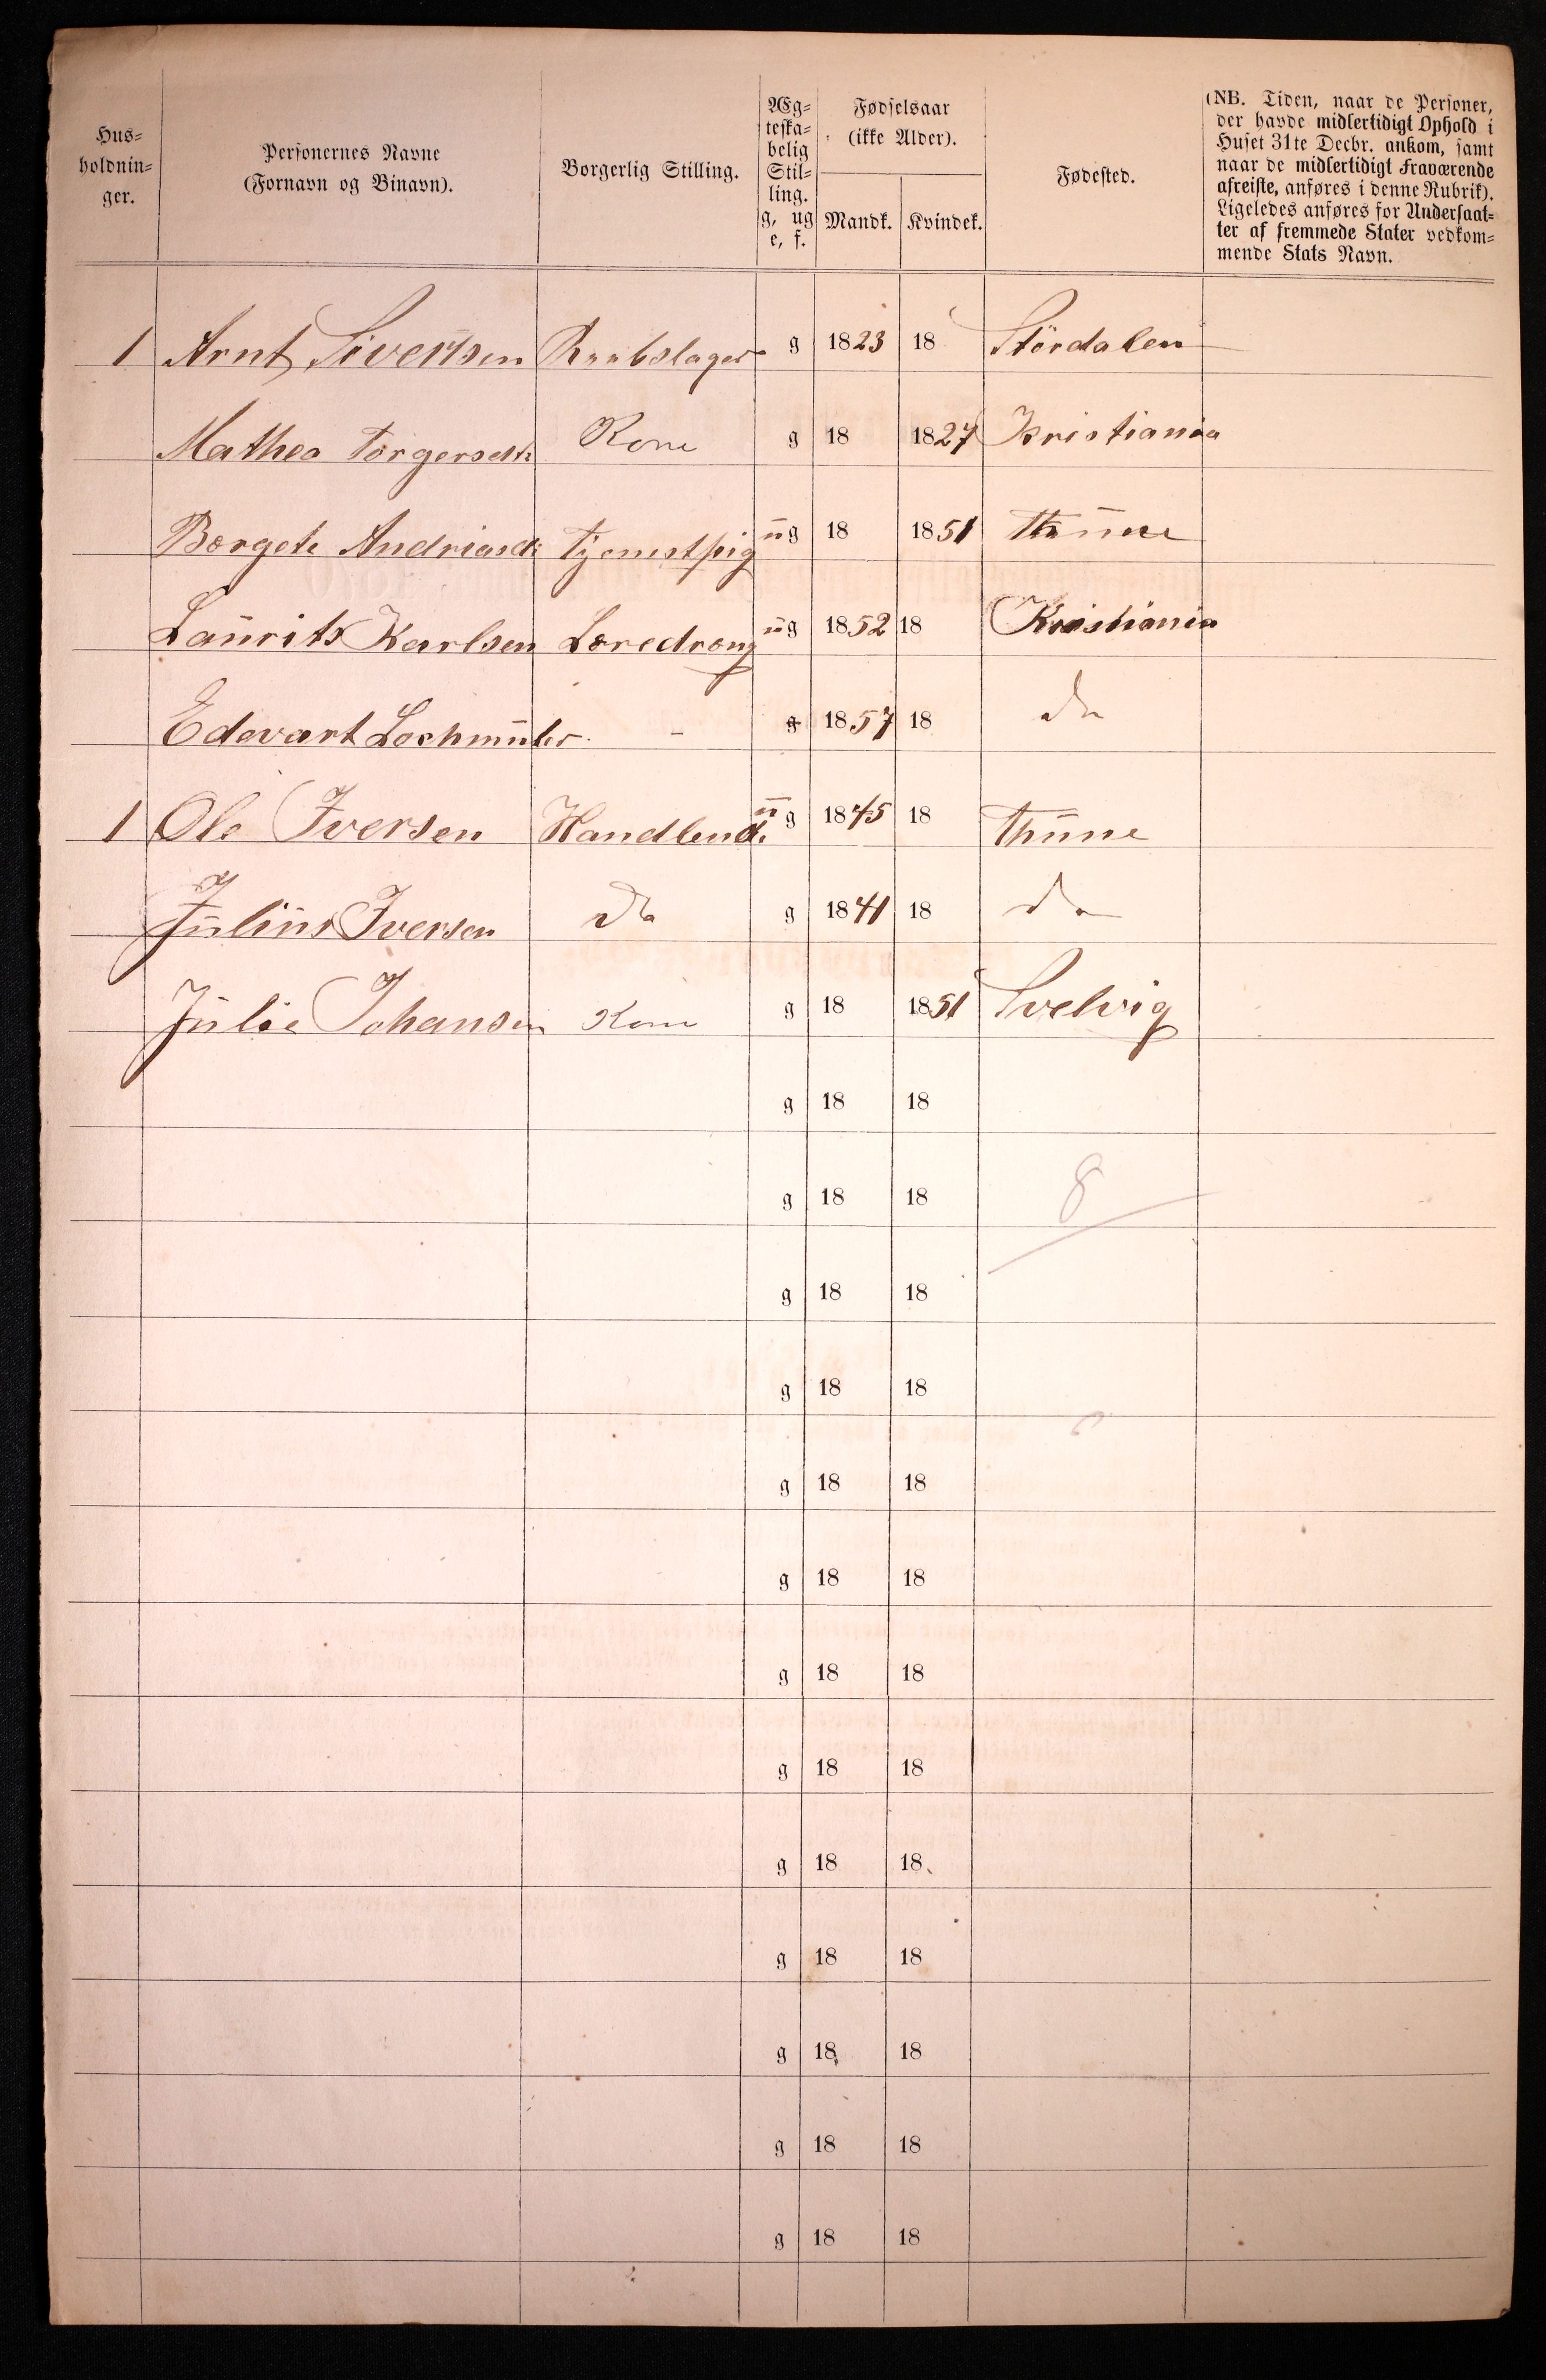 Hus-
holdnin-
ger.
Personernes Navne
(Fornavn og Binavn).
Borgerlig Stilling.
Æg-
teska-
belig
Stil-
ling.
g, ug
e, f.
Fødselsaar
(ikke Alder).
Mandk. Kvindek.
Fødested.
(NB. Tiden, naar de Personer,
der havde midlertidigt Ophold i
Huset 31te Decbr. ankom, samt
naar de midlertidigt Fraværende
afreiste, anføres i denne Rubrik).
Ligeledes anføres for Undersaat-
ter af fremmede Stater vedkom-
mende Stats Navn.
1 Arnt Sivertsen g 1823 18 Stördalen
Mathea Torgersdtr Kone g 18 1827 Kristiania
Borgete Andriasd: Tjenestpig ug 18 1851 Thune
Laurits Karlsen Loredreng ug 1852 18 Kristiania
Edevart Lochmuler - g 1857 18 do
1 Ole Iversen Handlend. ug 1845 18 Thune
Julius Iversen do g 1841 18 do
Julie Johansen Kone g 18 1851 Svelvig
g 18 18
g 18 18 8
g 18 18
g 18 18
g 18 18
g 18 18
g 18 18
g 18 18
g 18 18
g 18 18
g 18 18
g 18 18
g 18 18